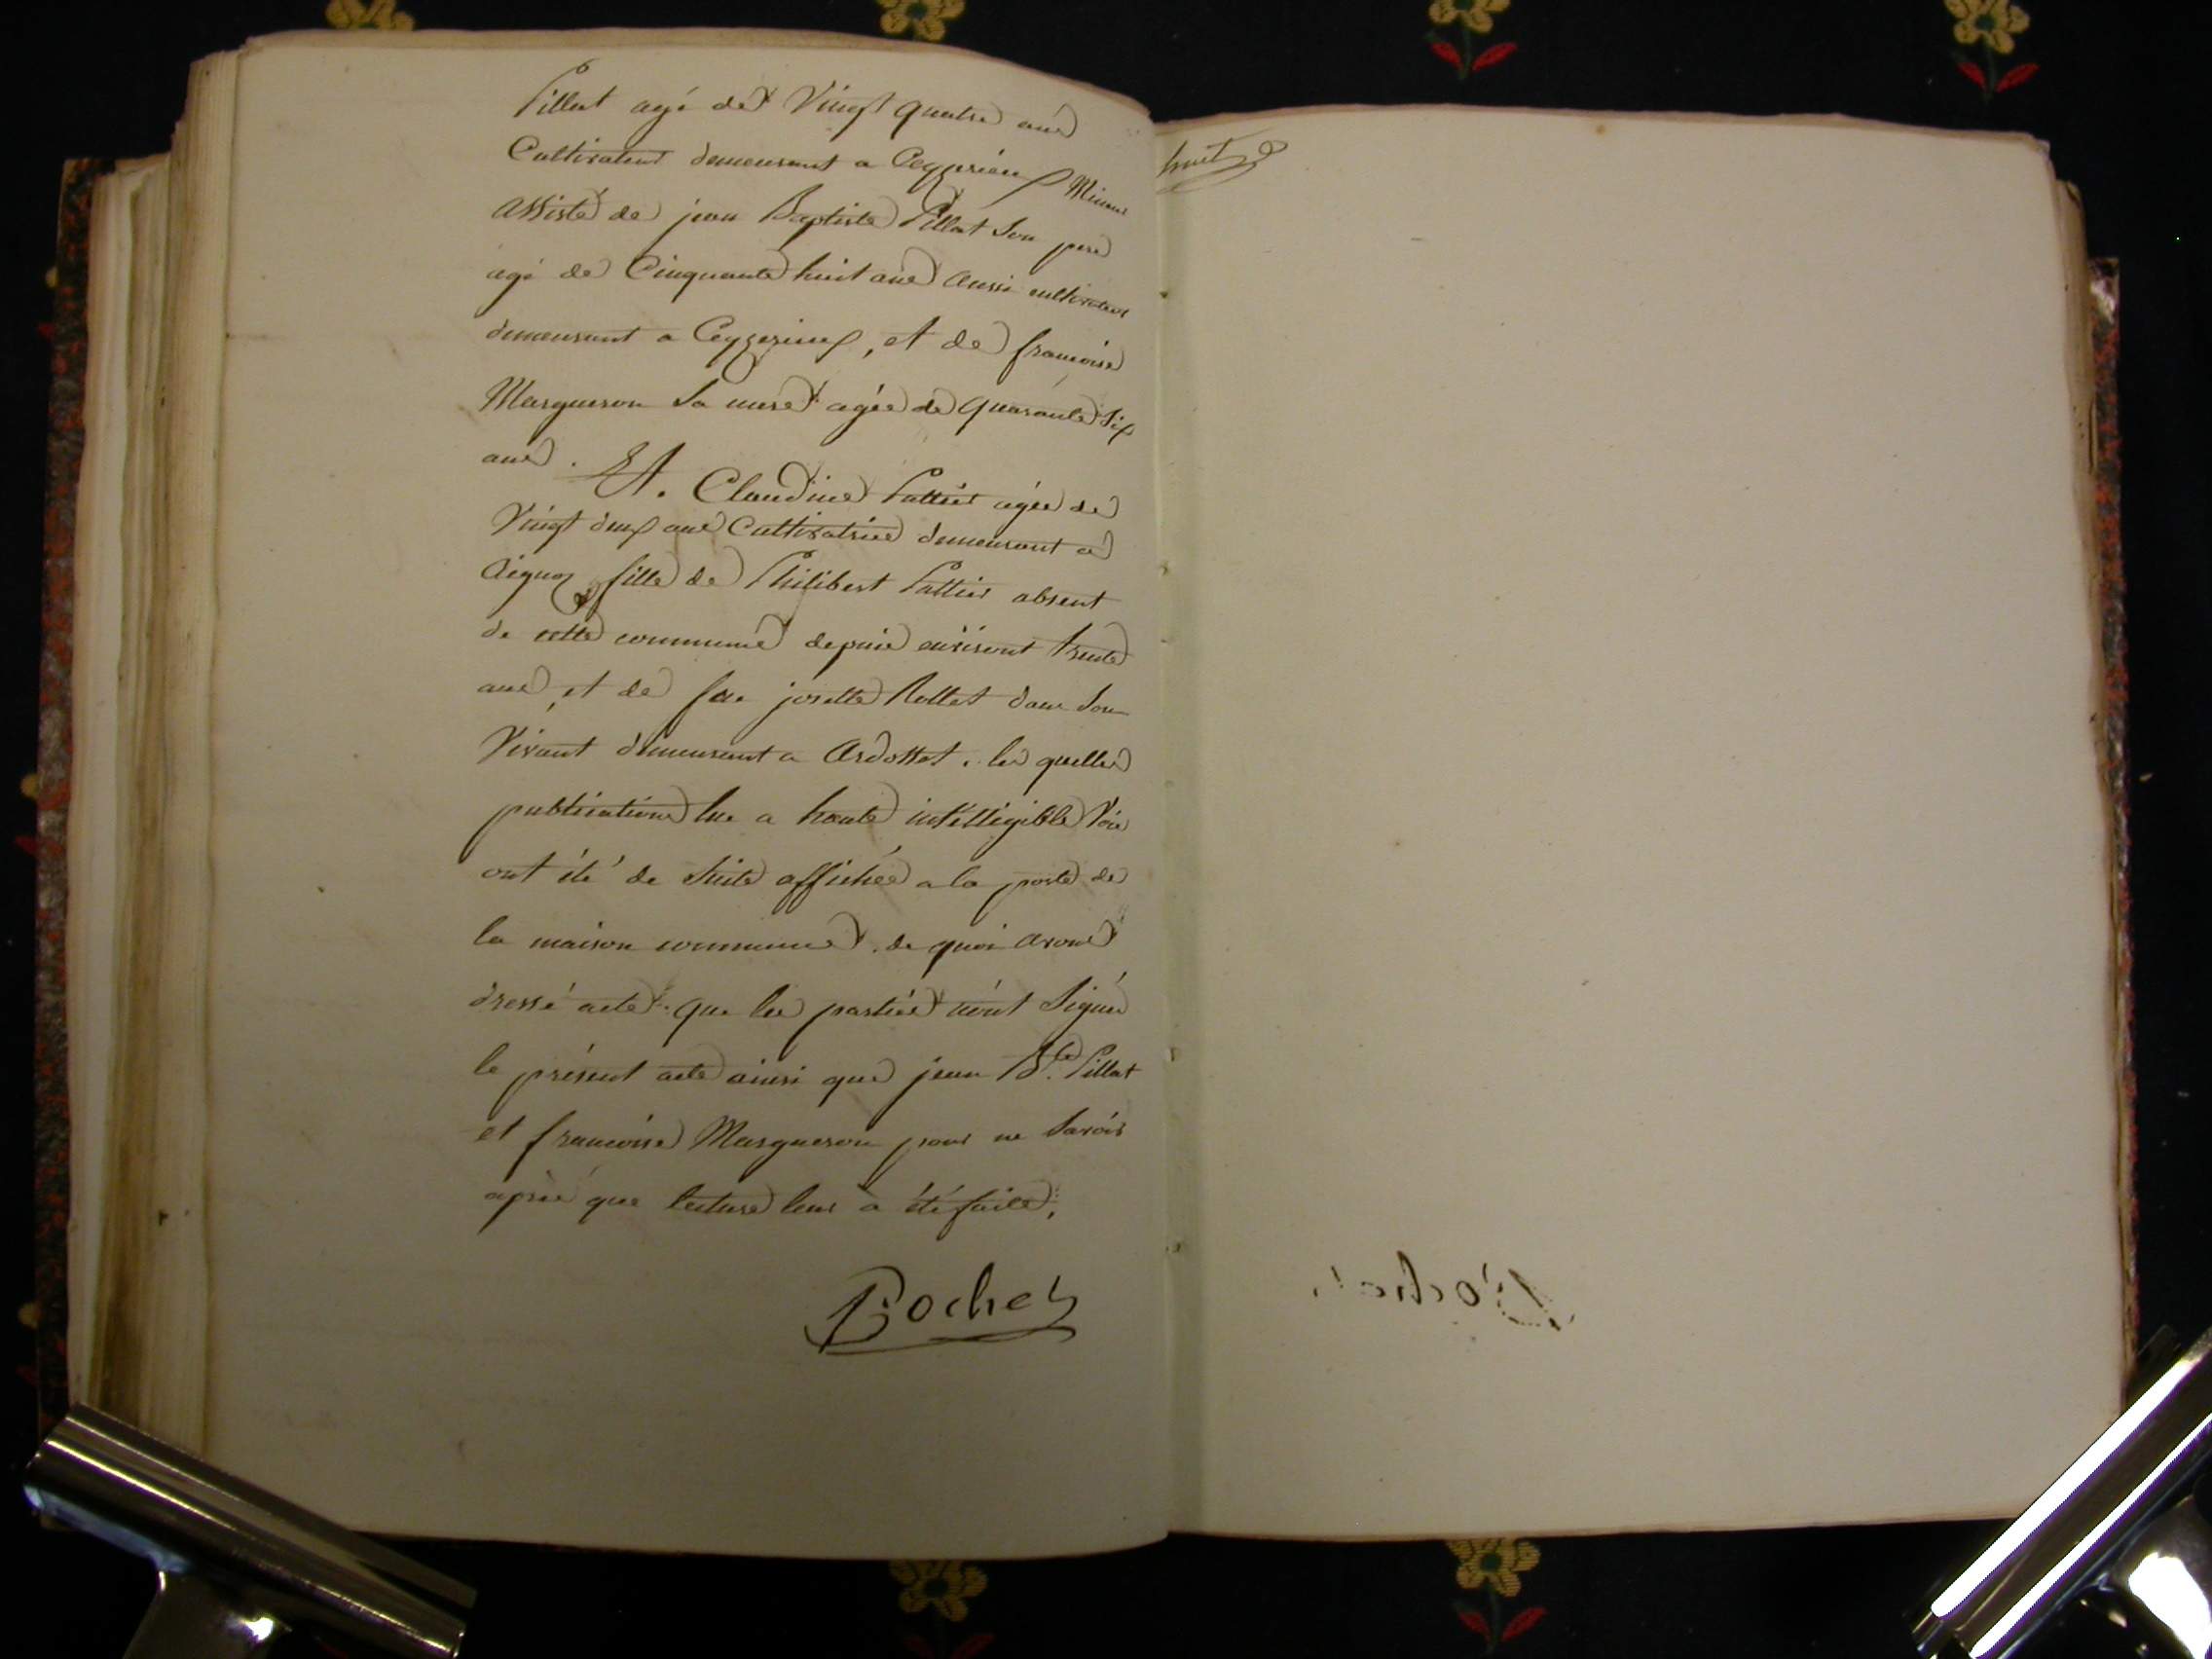 Pillat agé de Vingt quatre ans
Cultivateur demeurant a Ceyzerieux Mineur
assisté de jean Baptiste Pillat son pere
agé de Cinquante huit ans aussi cultivateur
demeurant a Ceyzerieux, et de francoise
Margueron sa mere agée de quarante six
ans. Et. Claudine Pattier agée de
Vingt deux ans Cultivatrice demeurant a
Aignoz fille de Philibert Pattier absent
de cette commune depuis environt trente
ans, et de feue josette Rollet dans son
Vivant demeurant a Ardosset. les quelles
publications lue a haute intelligible Voie
ont été de suite affichée a la porte de
la maison commune. de quoi avons
dressé acte. que les parties n'ont signés
le présent acte ainsi que jean Bte. Pillat
et francoise Margueron pour ne savoir
après que lecture leur à été faite;
Bochet
huit